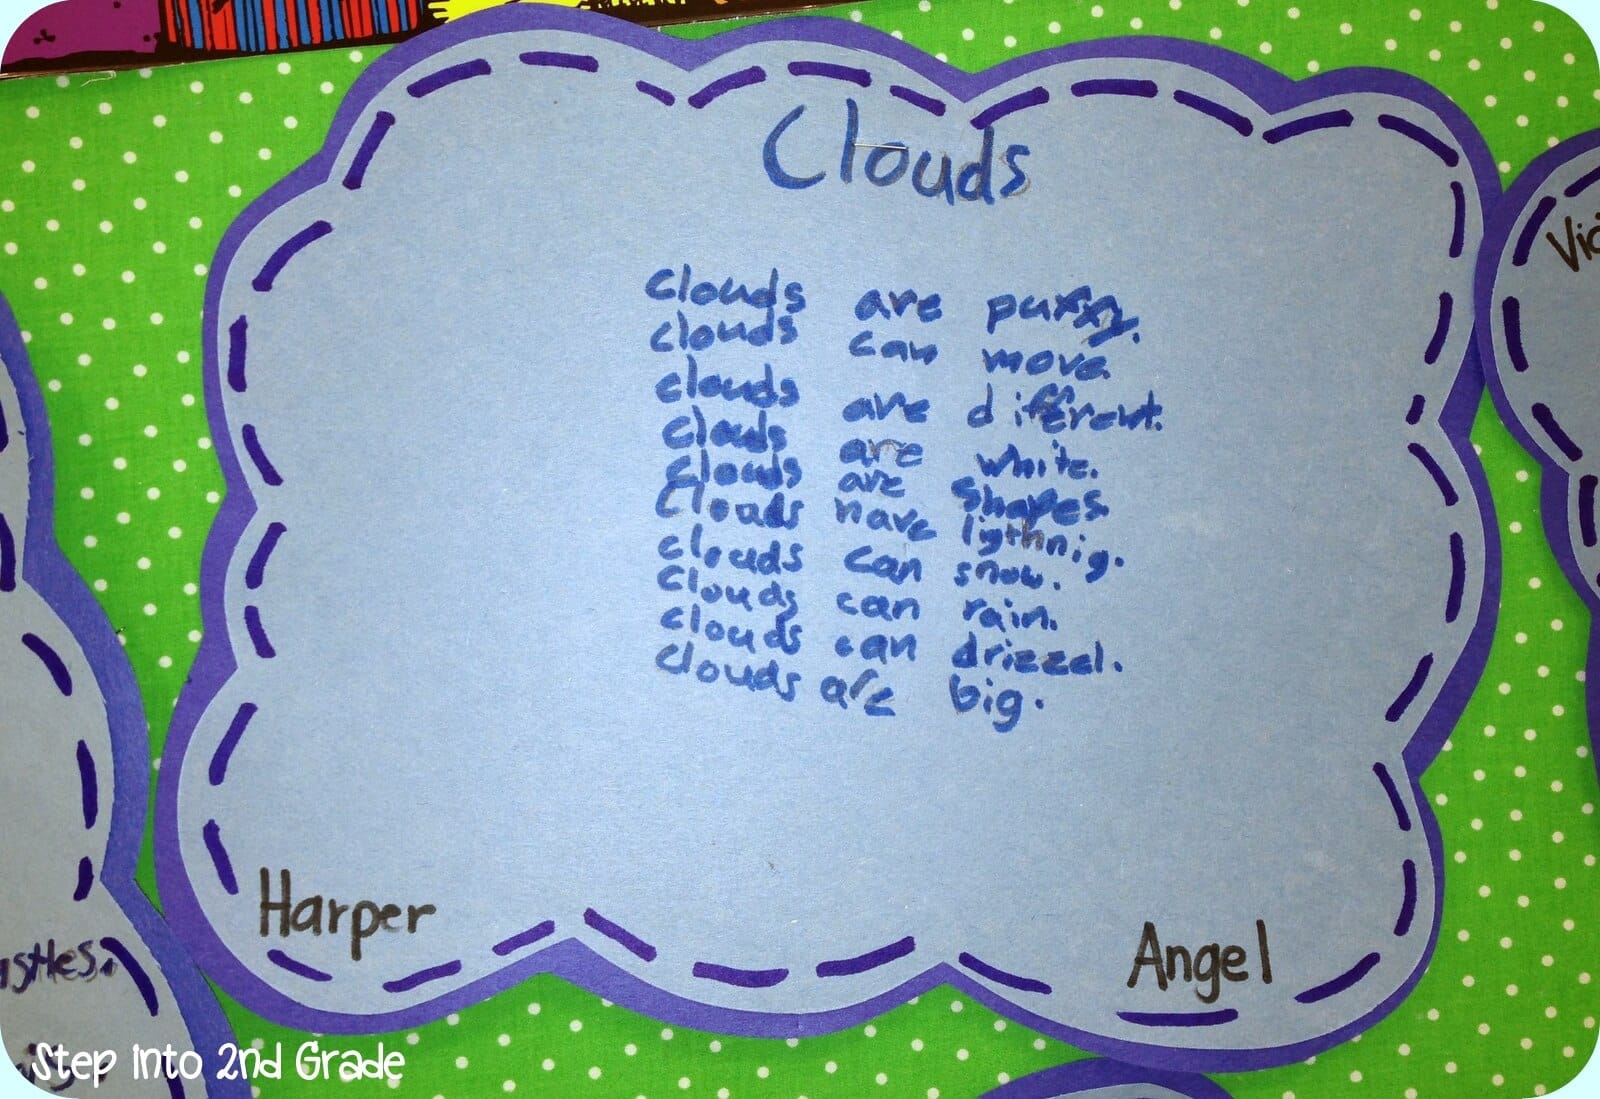 Clouds
clouds are puffy.
clouds can move
clouds are different.
clouds are white.
clouds are shapes.
clouds have ligthnig.
clouds can snow.
clouds can rain.
clouds can drizzel.
clouds are big.
Harper
Angel
Step into 2nd Grade